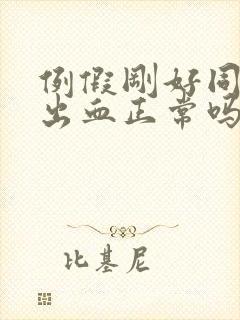 例假刚好同
出血正常吗
比基尼